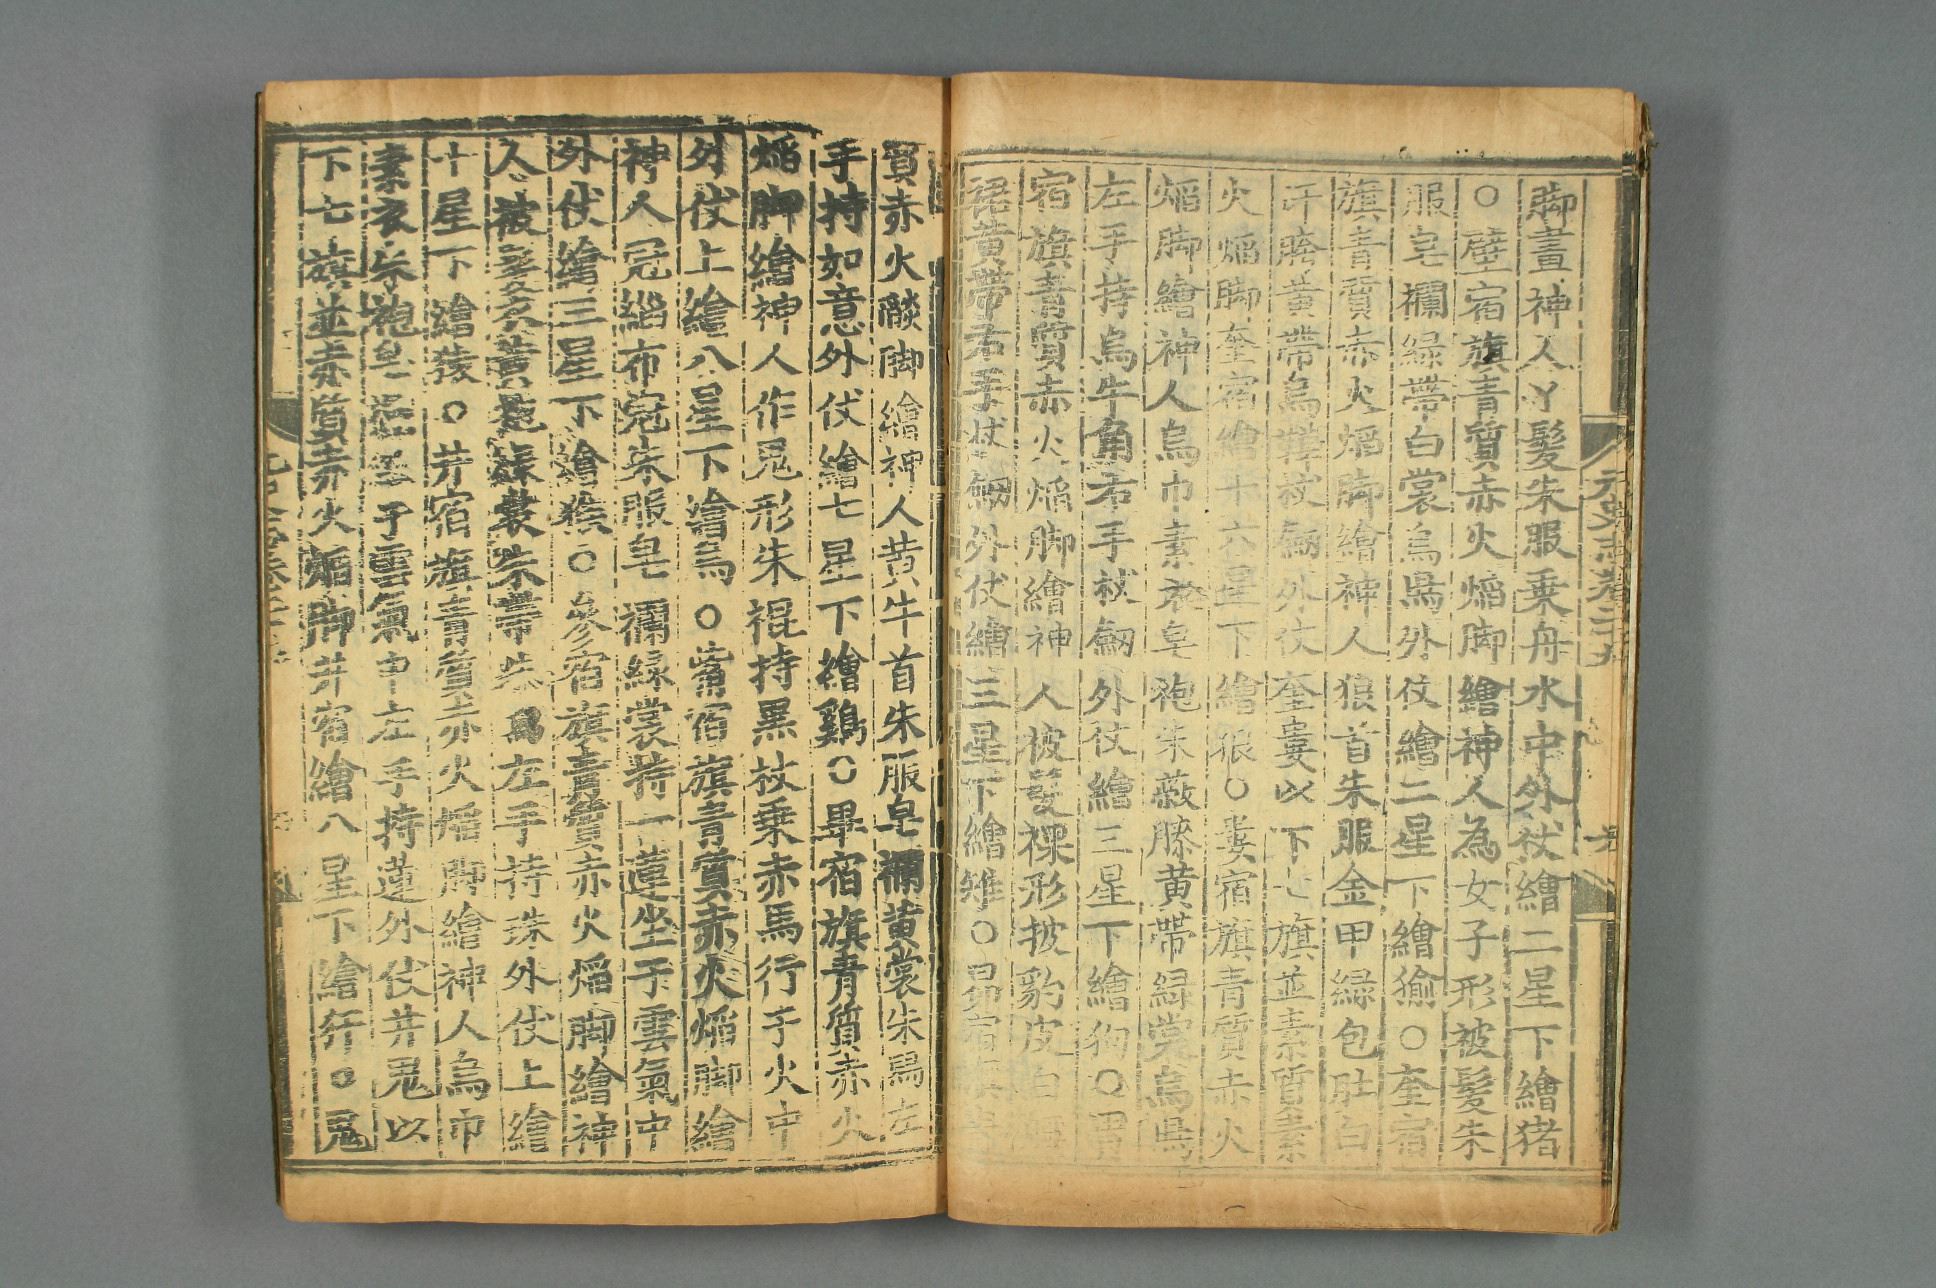 脚畫神人丫髮朱服乗舟水中外仗繪二星下繪猪
○壁宿旗青質赤火焰脚繪神人為女子形被髮朱
服皂襴緑帶白裳烏舄外仗繪二星下繪㺄○奎宿
旗青質赤火焰脚繪神人狼首朱服金甲緑包肚白
汗胯黄帶烏鞾杖劒外仗奎婁以下七旗並素質素
火焰脚奎宿繪十六星下繪狼○婁宿旗青質赤火
焰脚繪神人烏巾素衣皂袍朱蔽膝黄帶緑裳烏舄
左手持烏牛角右手杖劒外仗繪三星下繪狗○胃
宿旗青質赤火焰脚繪神人被髮裸形披豹皮白
裙黄帶右手杖劒外仗繪三星下繪雉○昴宿旗青
元史志卷二十九
質赤火燄脚繪神人黄牛首朱服皂襴黄裳朱舄左
手持如意外仗繪七星下繪鷄○畢宿旗青質赤火
焰脚繪神人作鬼形朱裩持黒杖乗赤馬行于火中
外仗上繪八星下繪烏○觜宿旗青質赤火焰脚繪
神人冠緇布冠朱服皂襴緑裳持一蓮坐于雲氣中
外仗繪三星下繪猴○參宿旗青質赤火焰脚繪神
人被髮衣黄袍緑裳朱帶朱舄左手持珠外仗上繪
十星下繪猿○井宿旗青質赤火焰脚繪神人烏巾
素衣朱袍皂襴坐于雲氣中左手持蓮外仗井鬼以
下七旗並赤質赤火焰脚井宿繪八星下繪犴○鬼